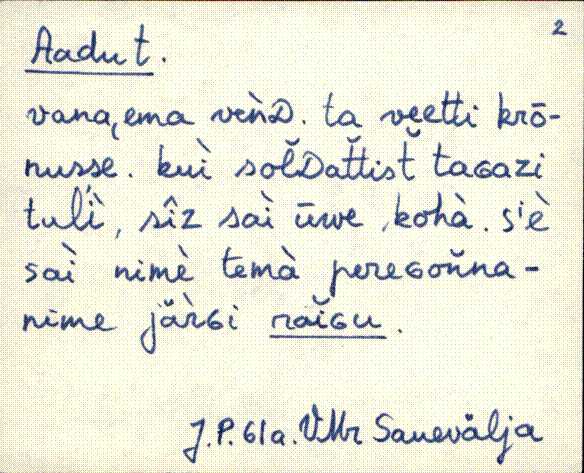 2
Aadu t.
vana,ema veǹD. ta vęetti krō-
nusse. kuì sol̆Dat̆tist̆ taGazi
tulì, sîz saì ūwe kohà. s'è
saì nimè temà pereGon̆na-
nime jär̀Gi raĭGu.
J.P. 61a. VMr Sauevälja